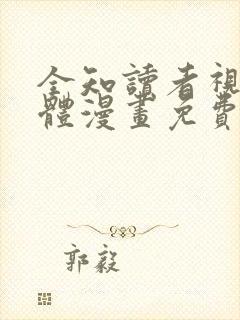 全知讀者視
體漫畫免費
郭毅